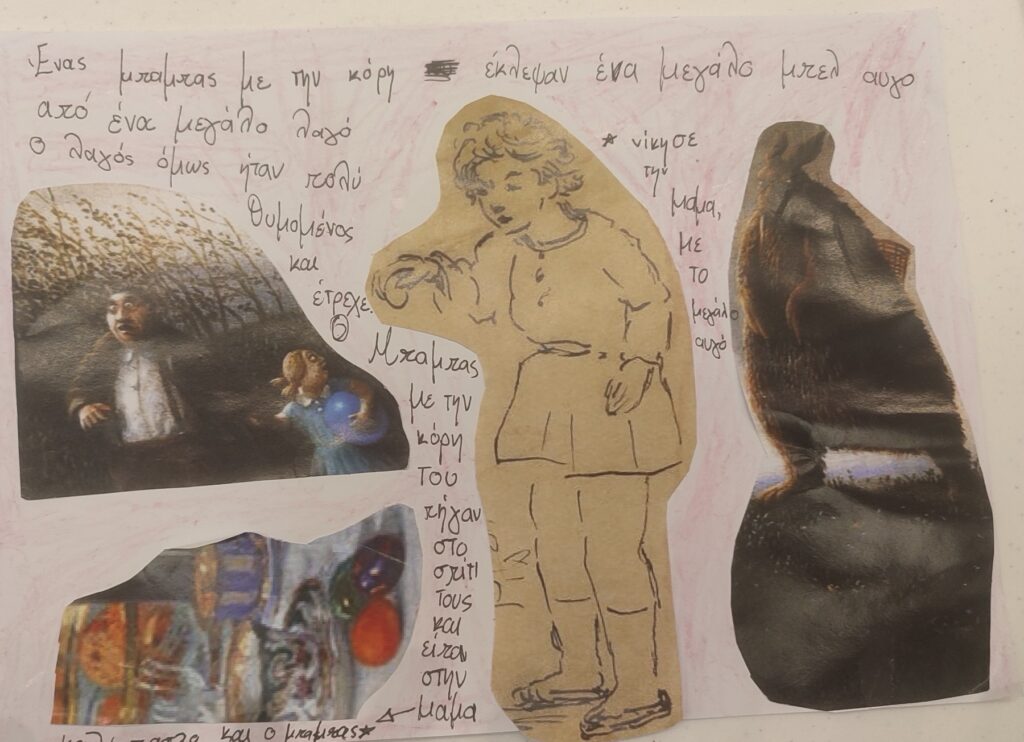 Ένας μπαμπας με την κόρη έκλεψαν ένα μεγάλο μπελ αυγο
από ένα μεγάλο λαγό
Ο λαγός όμως ήταν πολύ
θυμομένος
και
έτρεχε.
Ο
Μπαμπας
με την
κόρη
Του
πήγαν
στο
σπίτι
τους
και
είπαν
στην
μαμα
και ο μπαμπας★
★ νίκησε
την
μαμα,
με
το
μεγάλο
αυγό